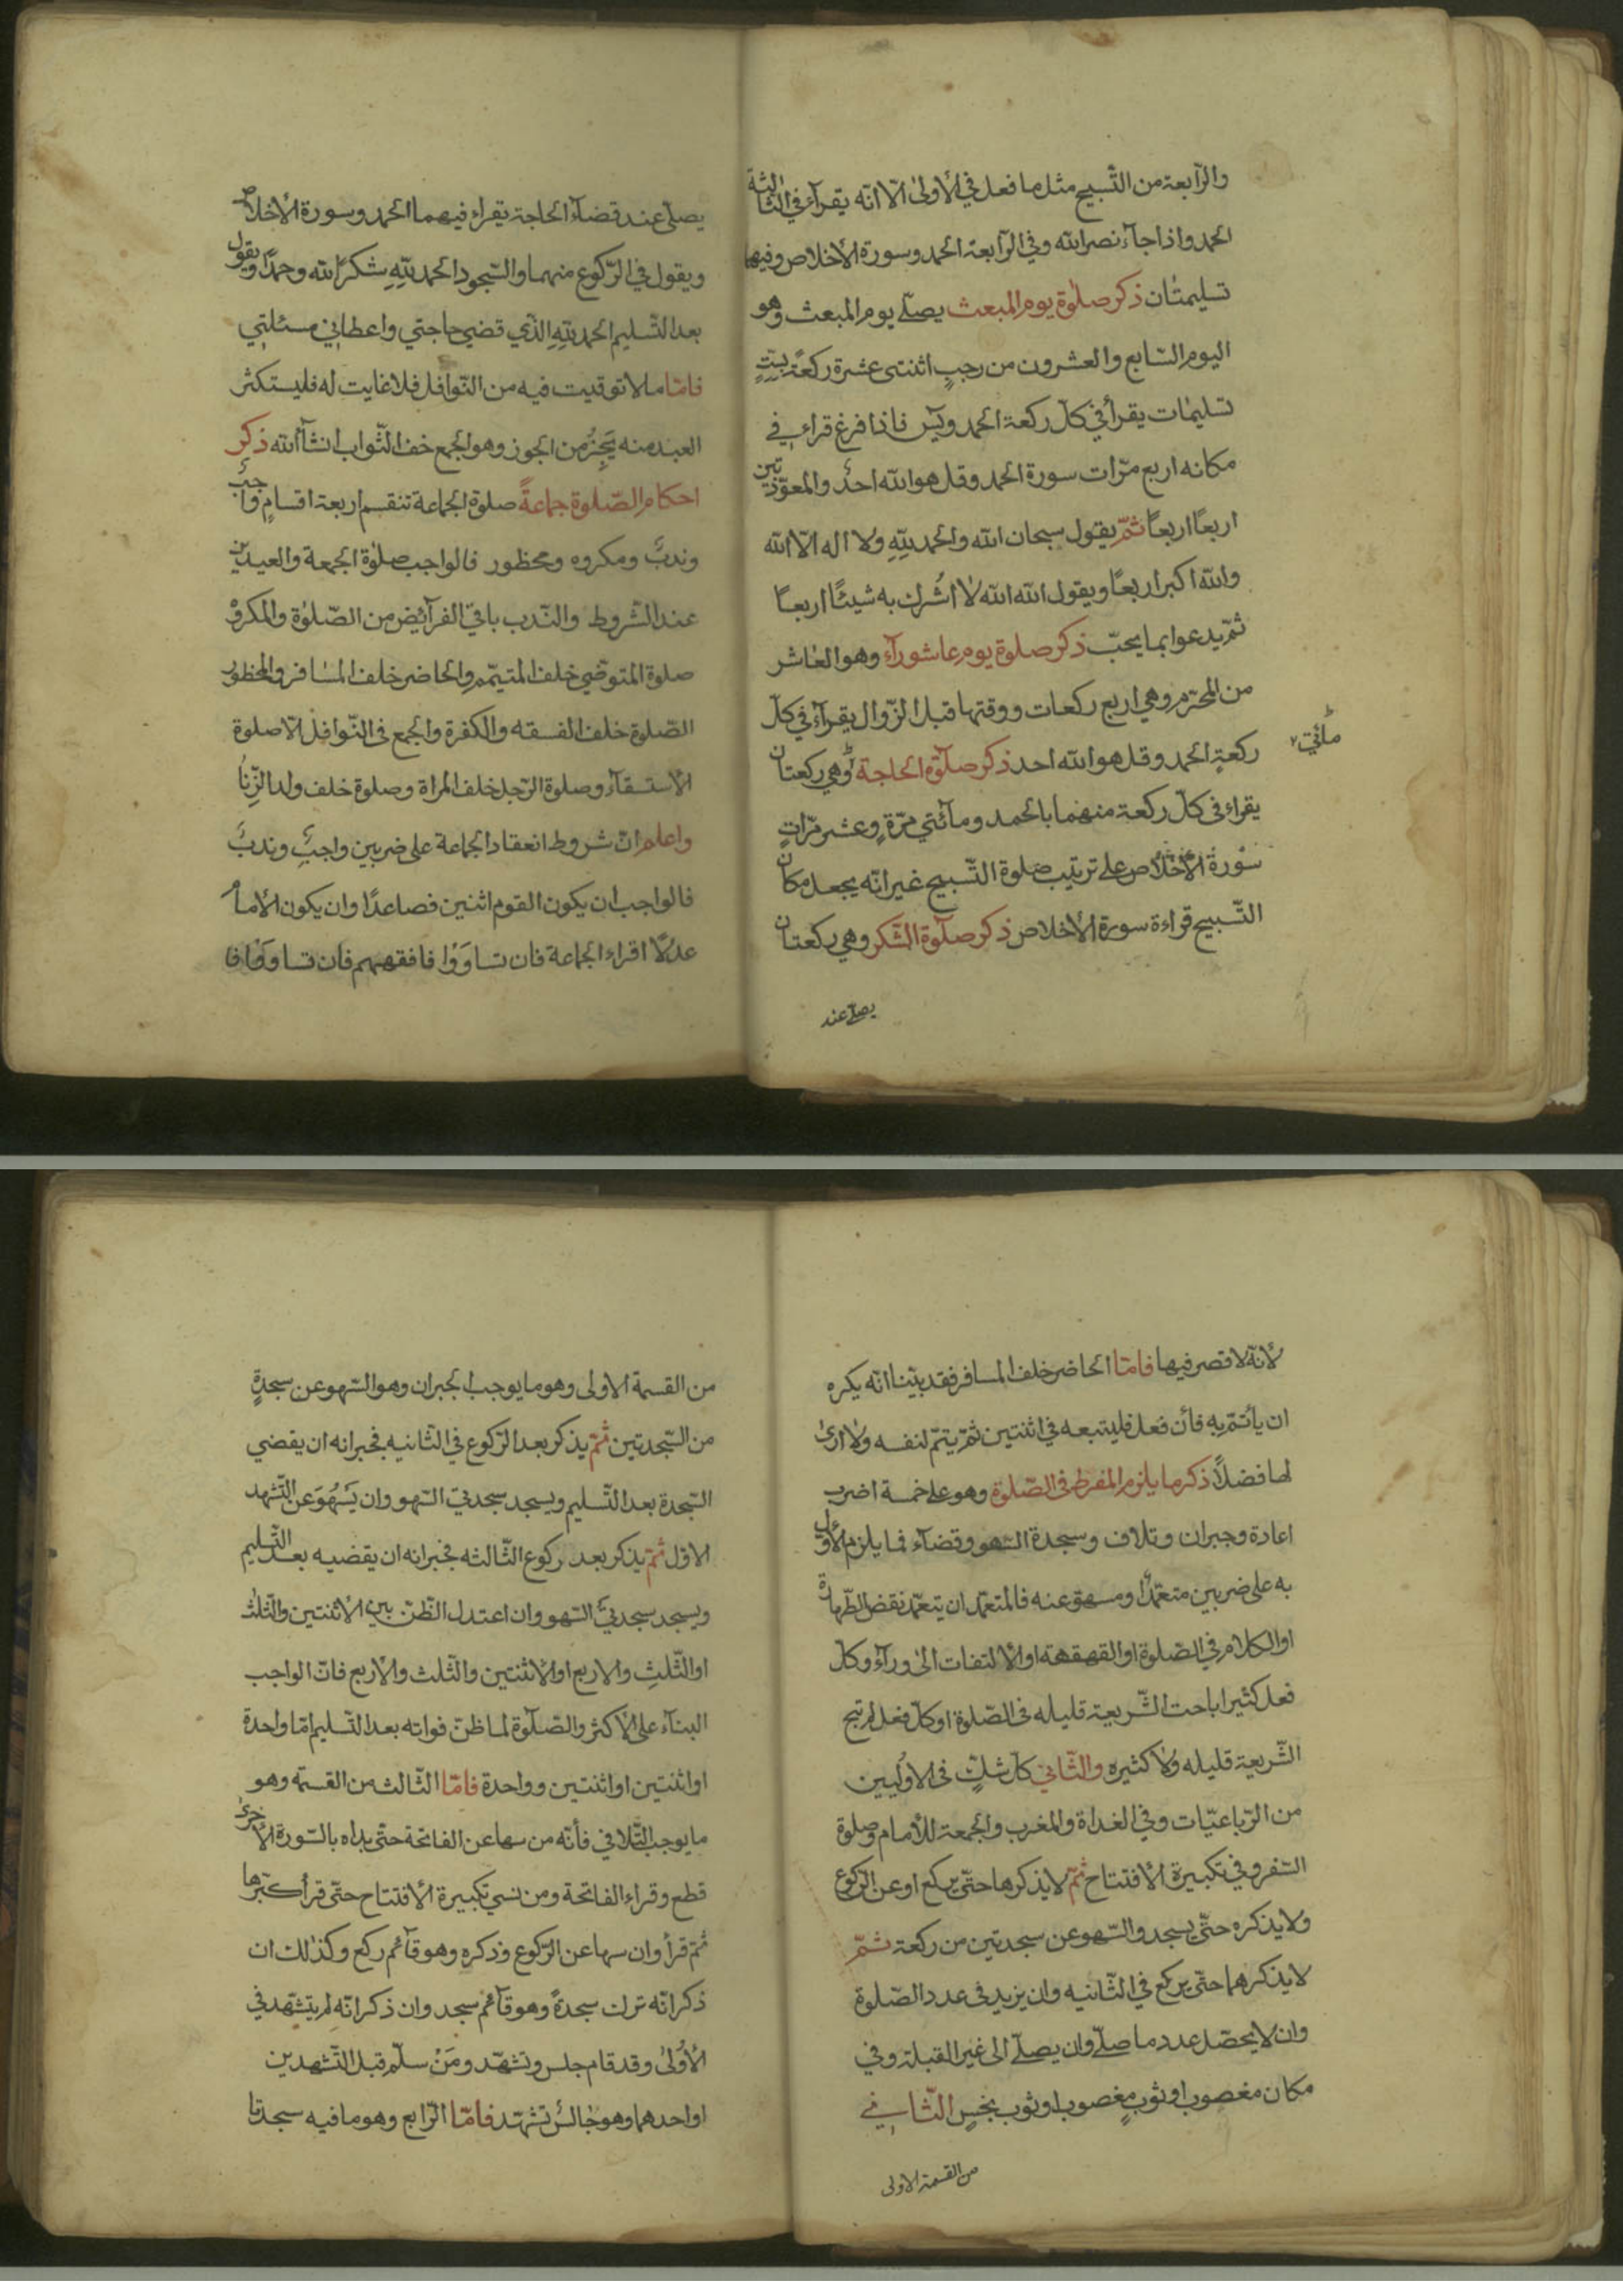 والرّابعة من التّسبيح مثل ما فعل في الأولى الّا انّه يقرأ في الثالثة
الحمد واذا جآء نصر الله وفي الرّابعة الحمد وسورة الاخلاص وفيها
تسليمتان ذكر صلوة يوم المبعث يصلّي يوم المبعث وهو
اليوم السّابع والعشرون من رجبٍ اثنتى عشرة ركعةً بستِّ
تسليمات يقرأ في كلّ ركعة الحمد ويٓس فاذا فرغ قراء في
مكانه اربع مرّات سورة الحمد وقل هو الله احدٌ والمعوّذتين
اربعًا اربعًا ثمّ يقول سبحان الله والحمد لله ولا اله الّا الله
والله اكبر اربعًا ويقول الله الله لا اُشرك به شيئًا اربعًا
ثمّ يدعوا بما يحبّ ذكر صلوة يوم عاشورآء وهو العاشر
من المحرّم وهي اربع ركعات ووقتها قبل الزّوال يقرأ في كلّ
ركعةٍ الحمد وقل هو الله احد ذكر صلوة الحاجة وهي ركعتان
مائتي
يقراء في كلّ ركعة منهما بالحمد ومائتي مرّةٍ وعشر مرّاتٍ
سورة الأخلاص على ترتيب صلوة التّسبيح غير انّه يجعل مكان
التّسبيح قراءة سورة الاخلاص ذكر صلوة الشّكر وهي ركعتان
يصلّي عند
يصلّي عند قضآء الحاجة يقراء فيهما الحمد وسورة الأخلاص
ويقول في الرّكوع منهما والسّجود الحمد للهِ شكرًا لله وحمدًا ويقول
بعد التّسليم الحمد للهِ الذّي قضي حاجتي واعطاني مسئلتي
فامّا ما لا توقيت فيه من النّوافل فلا غايت له فليستكثر
العبد منه وهو الجمع الثّواب انشآء الله ذكر
احكام الصّلوة جماعةً صلوة الجماعة تنقسم اربعة اقسامٍ واجبٌ
وندبٌ ومكروه ومحظور فالواجب صلوة الجمعة والعيدين
عند الشّروط والنّدب باقي الفرآئض من الصّلوة والمكروه
صلوة المتوضّي خلف المتيمّم والحاضر خلف المسافر والمحظور
الصّلوة خلف الفسقه والكفرة والجمع فى النّوافل الّا صلوة
الاستسقآء وصلوة الرّجل خلف المراة وصلوة خلف ولد الزّنا
واعلم انّ شروط انعقاد الجماعة على ضربين واجبٌ وندبٌ
فالواجب ان يكون القوم اثنين فصاعدًا وان يكون الأمام
عدلًا اقراء الجماعة فان تساوَوْا فافقههم فان تساووا فا
لأنّه لا قصر فيها فامّا الحاضر خلف المسافر فقد بيّنا انّه يكره
ان يأتمّ به فأن فعل فليتبعه في اثنتين ثمّ يتمّ لنفسه ولا ارى
لها فضلًا ذكر ما يلزم المفرط فى الصّلوة وهو على خمسة اضرب
اعادة وجبران وتلاف وسجدة السّهو وقضآء فما يلزم الأول
به على ضربين متعمّدًا ومسهوّ عنه فالمتعمّد ان يتعمّد نقض الطّهارة
او الكلام في الصّلوة او القهقهه او الالتفات الى ورآء وكلّ
فعل كثير اباحت الشّريعة قليله فى الصّلوة او كلّ فعل لم تبح
الشّريعة قليله ولا كثيره والثّاني كلّ شكٍّ فى الاوليين
من الرّباعيّات وفي الغداة والمغرب والجمعة للأمام وصلوة
السّفر وفي تكبيرة الأفتتاح ثمّ لا يذكرها حتّى يركع او عن الرّكوع
ولا يذكره حتّى يسجد والسّهو عن سجدتين من ركعة ثمّ
لا يذكرهما حتّى يركع في الثّانيه وان يزيد فى عدد الصّلوة
وان لا يحصّل عدد ما صلّى وان يصلّي الى غير القبلة وفي
مكان مغصوب او ثوبٍ مغصوب او ثوب نجسٍ الثّاني
من القسمة الاولى
من القسمة الاولى وهو ما يوجب الجبران وهو السّهو عن سجدةٍ
من السّجدتين ثمّ يذكر بعد الرّكوع في الثّانيه فجبرانه ان يقضي
السّجدة بعد التّسليم ويسجد سجدتي السّهو وان يَسْهُوَ عن التّشهد
الاوّل ثمّ يذكر بعد ركوع الثّالثه فجبرانه ان يقضيه بعد التّسليم
ويسجد سجدتي السّهو وان اعتدل الظّن بين الأثنتين والثّلث
او الثّلثِ والاربع او الأثنتين والثّلث والأربع فانّ الواجب
البنآء على الاكثر والصّلوة لما ظنّ فواته بعد التّسليم امّا واحدة
او اثنتين او اثنتين وواحدة فامّا الثّالث من القسمه وهو
ما يوجب التّلافي فأنّه من سها عن الفاتحة حتّى بداه بالسّورة الأخرى
قطع وقراء الفاتحة ومن نسي تكبيرة الأفتتاح حتّى قرأ كبّرها
ثمّ قرأ وان سها عن الرّكوع وذكره وهو قآئم ركع وكذلك ان
ذكر انّه ترك سجدةً وهو قآئم سجد وان ذكر انّه لم يتشهّد في
الأولى وقد قام جلس وتشهّد ومَنْ سلّم قبل التّشهدين
او احدهما وهو جالسٌ تشهّد فامّا الرّابع وهو ما فيه سجدتا